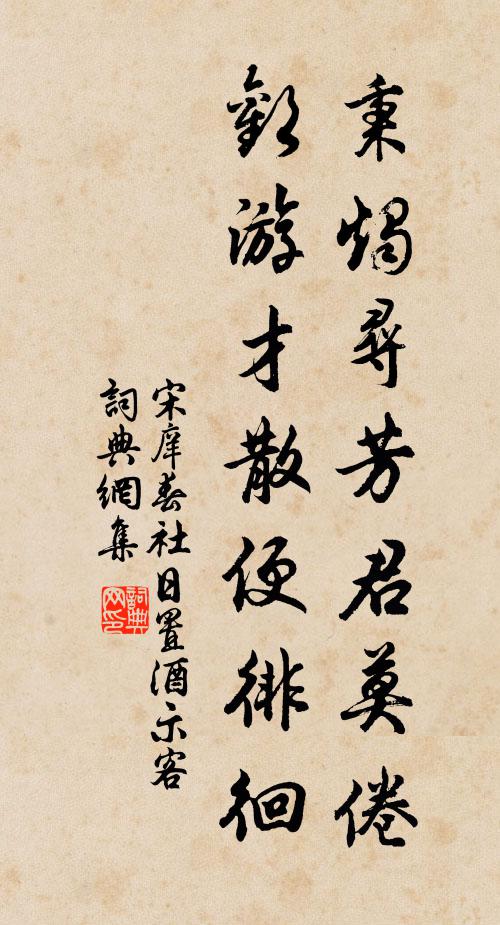 秉燭尋芳君莫倦
歡游才散便徘徊
宋庠春社日置酒示客
詞典網集
詞典网印